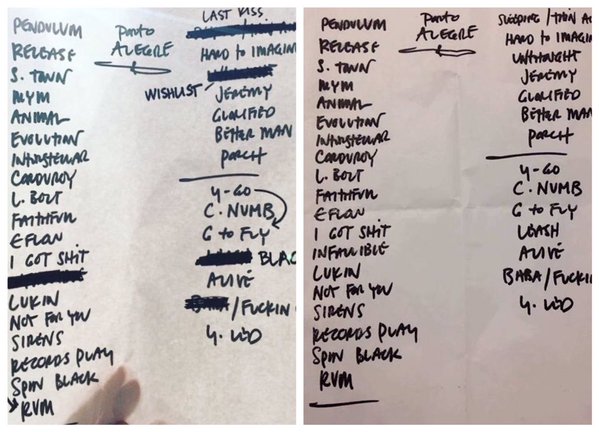 PENDULUM
RELEASE
S. TOWN
MYM
ANIMAL
EVOLUTION
INTERSTELLAR
CORDUROY
L. BOLT
FAITHFUL
E FLOW
I GOT SHIT
LUKIN
NOT FOR YOU
SIRENS
RECORDS PLAY
SPIN BLACK
RVM
PORTO
ALEGRE
LAST KISS.
HARD to IMAGIN
WISHLIST
JEREMY
GLORIFIED
BETTER MAN
PORCH
Y-GO
C. NUMB
G to FLY
BLAC
ALIVE
/FUCKIN
Y. LED
PENDULUM
RELEASE
S. TOWN
MYM
ANIMAL
EVOLUTION
INTERSTELLAR
CORDUROY
L. BOLT
FAITHFUL
E FLOW
I GOT SHIT
INFALLIBLE
LUKIN
NOT FOR YOU
SIRENS
RECORDS PLAY
SPIN BLACK
RVM
PORTO
ALEGRE
SLEEPING / THIN A
HARD to IMAGIN
UNTHOUGHT
JEREMY
GLORIFIED
BETTER MAN
PORCH
Y-GO
C. NUMB
G to FLY
LEASH
ALIVE
BABA/FUCKIN
Y. LED